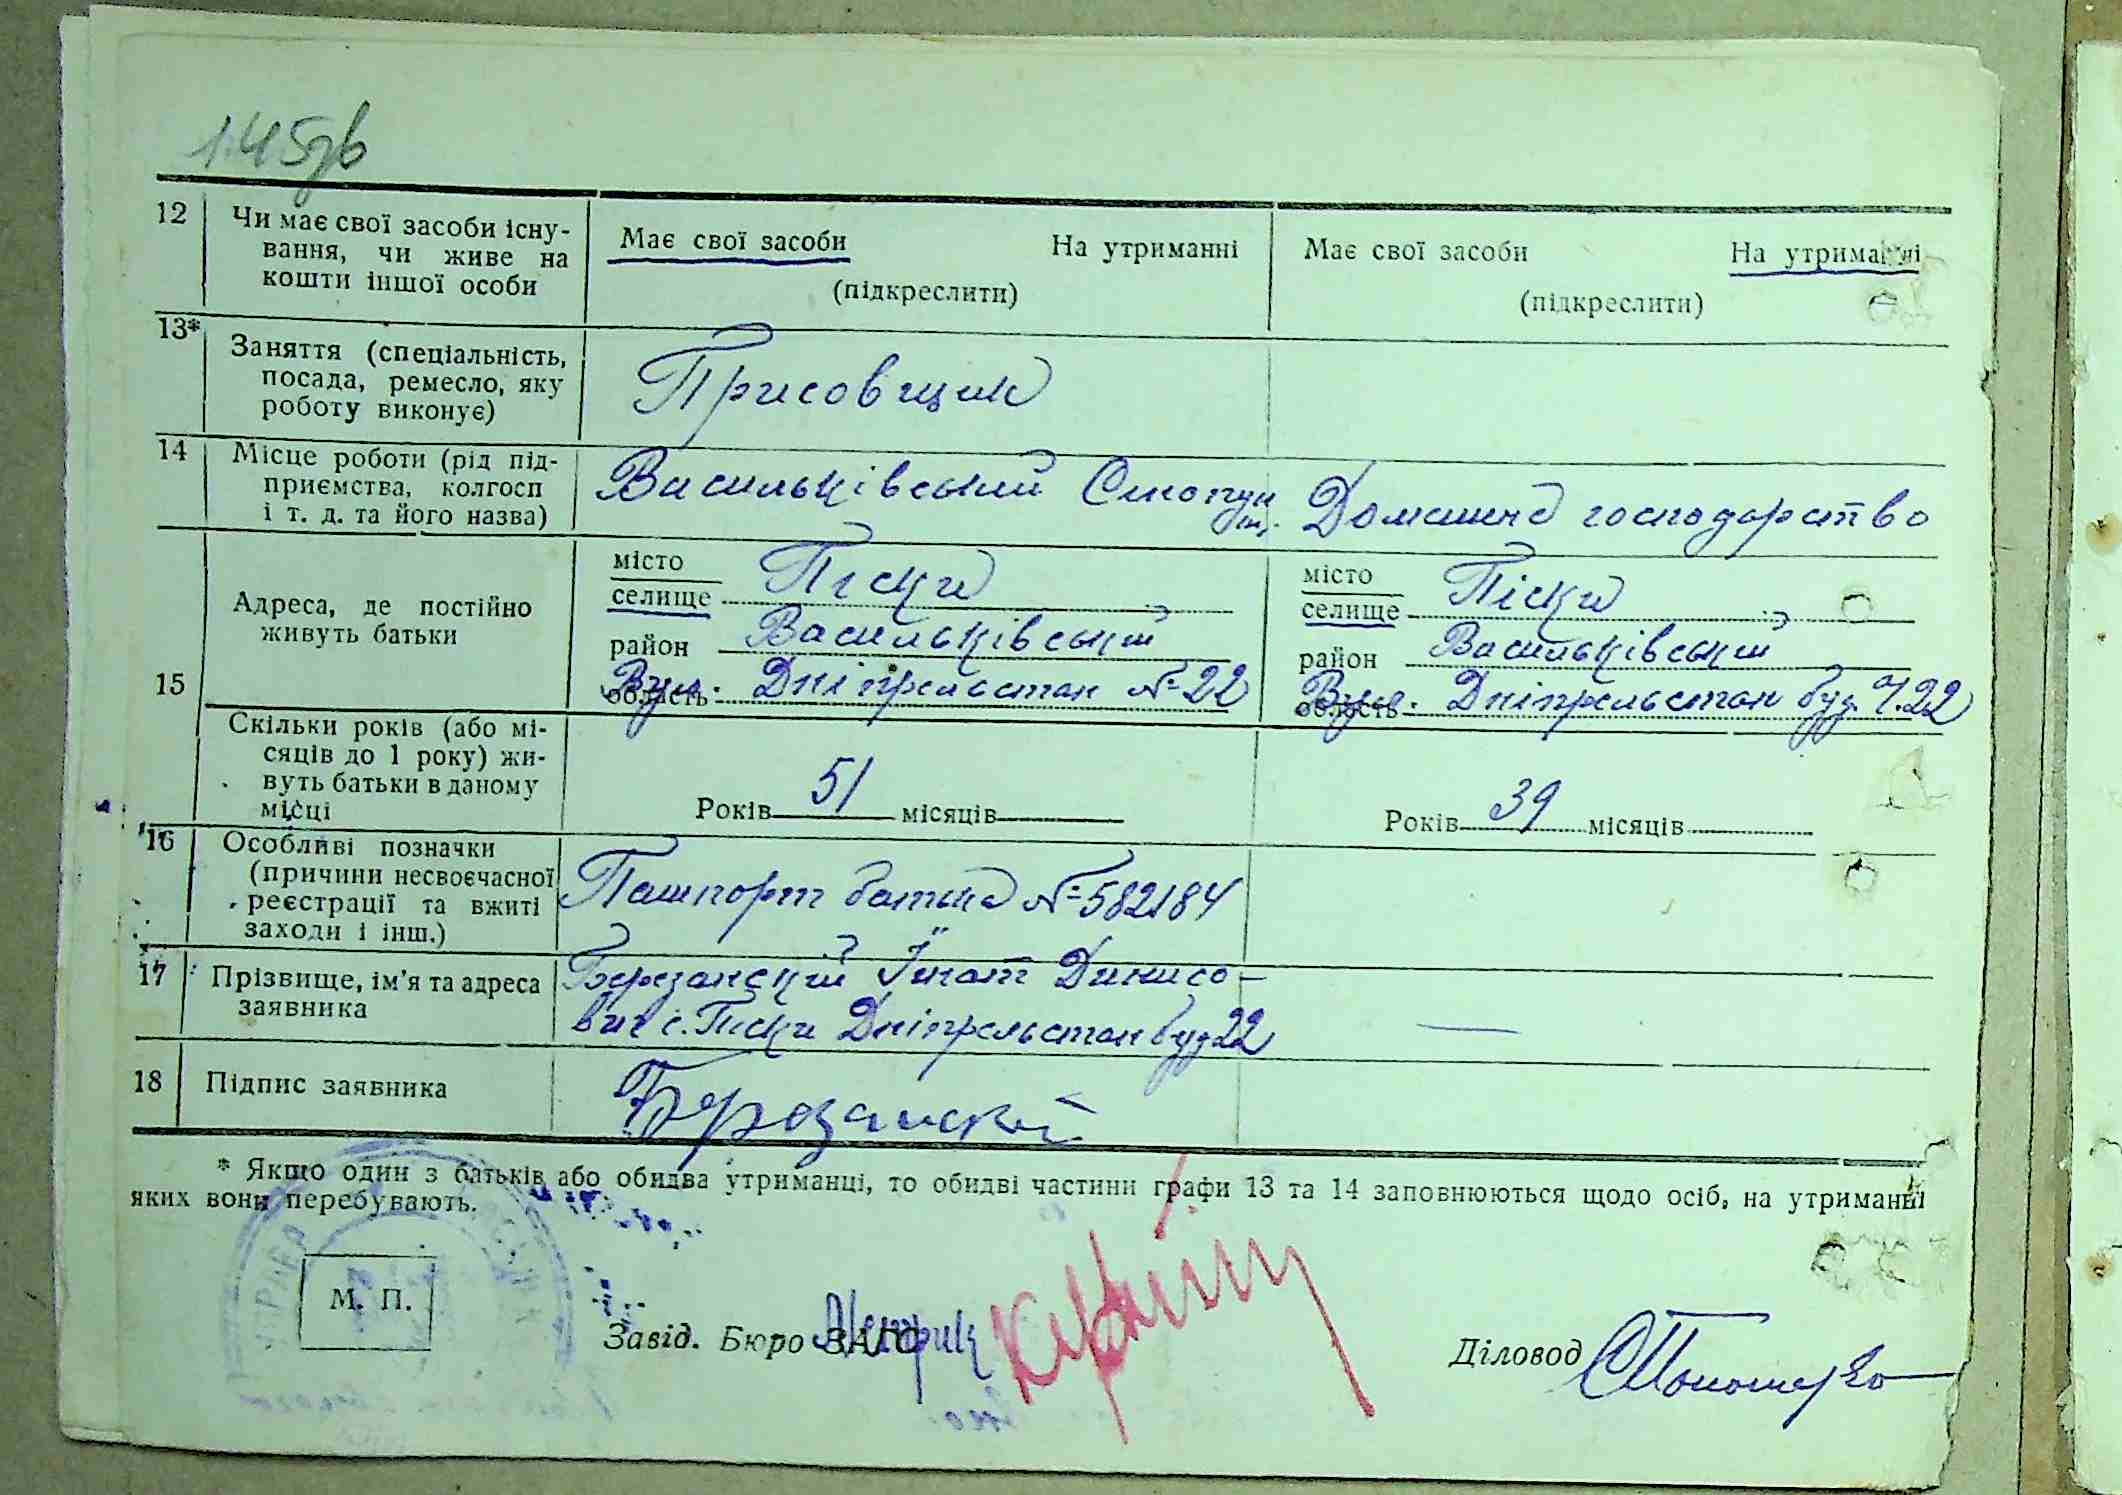 145зв
12 Чи має свої засоби існу-
вання, чи живе на
кошти іншої особи
Має свої засоби На утриманні
(підкреслити)
Має свої засоби На утриманні
(підкреслити)
13* Заняття (спеціальність,
посада, ремесло, яку
роботу виконує)
Присовщик
14 Місце роботи (рід під-
приємства, колгосп
і т. д. та його назва)
Васильківський
Домашнє господарство
15 Адреса, де постійно
живуть батьки
місто
селище Піски
район Васильківський
область Вул. Дніпрельстан № 22
місто
селище Піски
район Васильківський
область Вул. Дніпрельстан буд. Ч. 22
Скільки років (або мі-
сяців до 1 року) жи-
вуть батьки в даному
місці
Років 51 місяців
Років 39 місяців
16 Особливі позначки
(причини несвоєчасної
реєстрації та вжиті
заходи і інш.)
Пашпорт батька № 582184
17 Прізвище, ім'я та адреса
заявника
Березанский Ігнат Динисо-
вич с. Піски Дніпрельстан буд 22
18 Підпис заявника
Березанский
* Якщо один з батьків або обидва утриманці, то обидві частини графи 13 та 14 заповнюються щодо осіб, на утриманні
яких вони перебувають.
М. П.
Завід. Бюро ЗАГС
Діловод